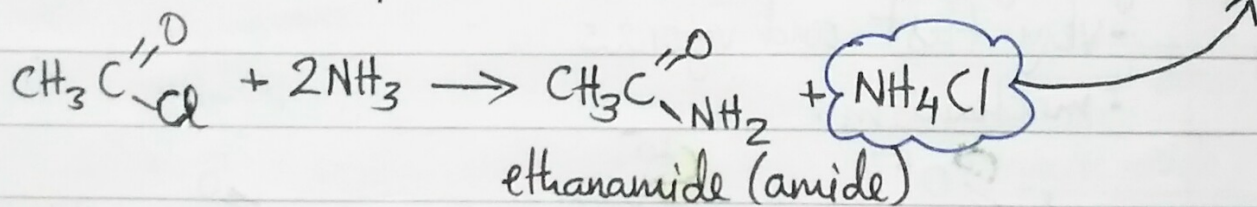 CH3C=O-Cl + 2NH3 → CH3C=O-NH2 + NH4Cl
ethanamide (amide)